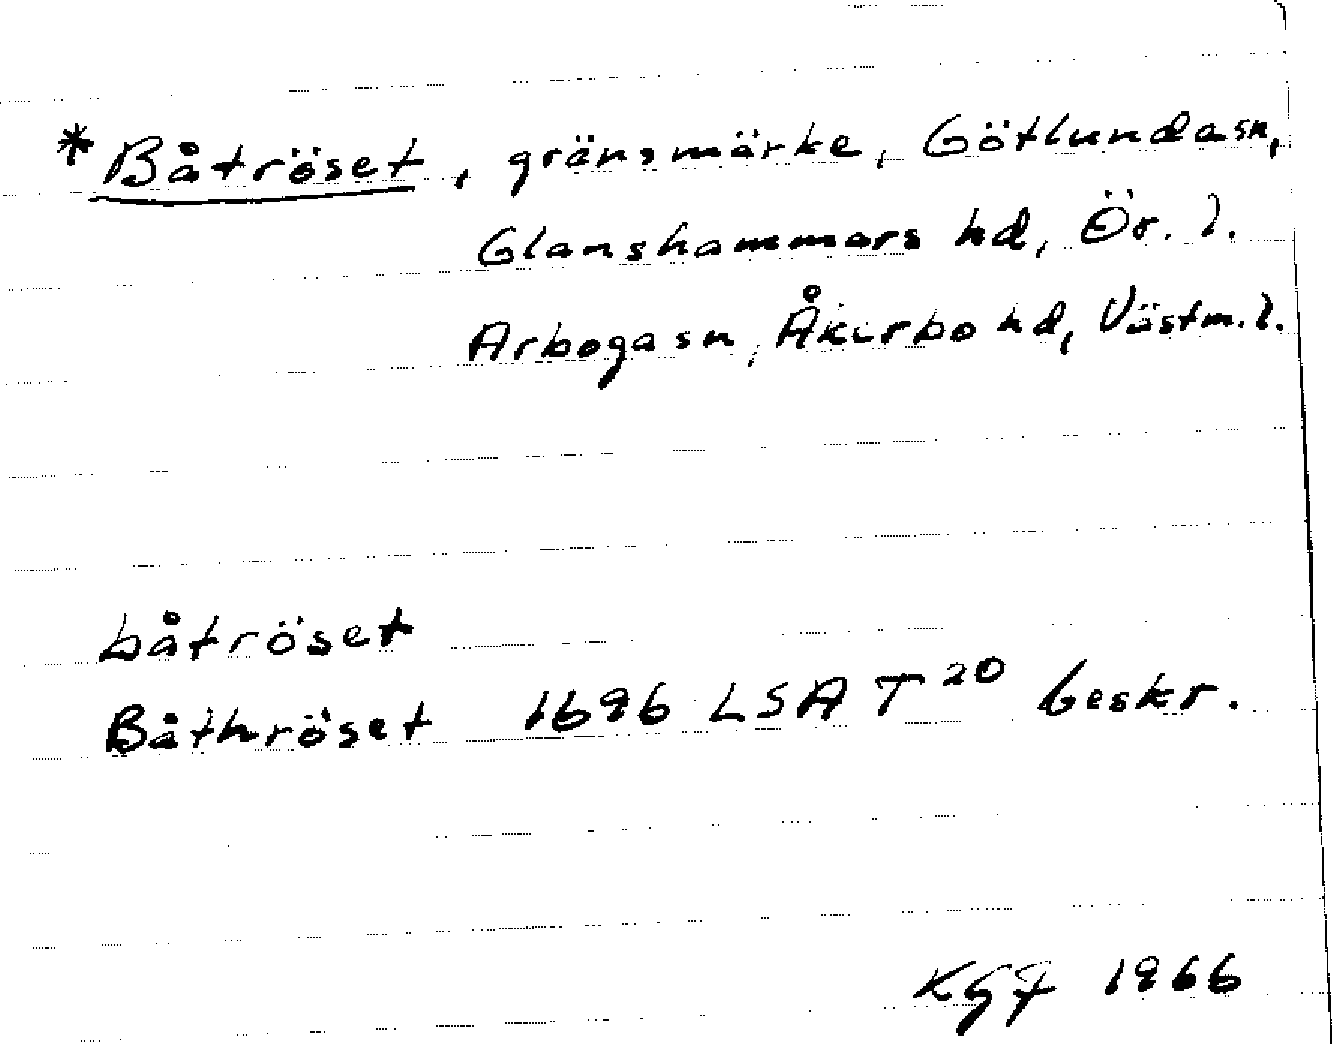 *Båtröset, gränsmärke, Götlunda sn,
Glanshammars hd, Ör. l.
Arboga sn, Åkerbo hd, Västm. l.
båtröset
Båthröset 1696 LSA T 20 beskr.
1966